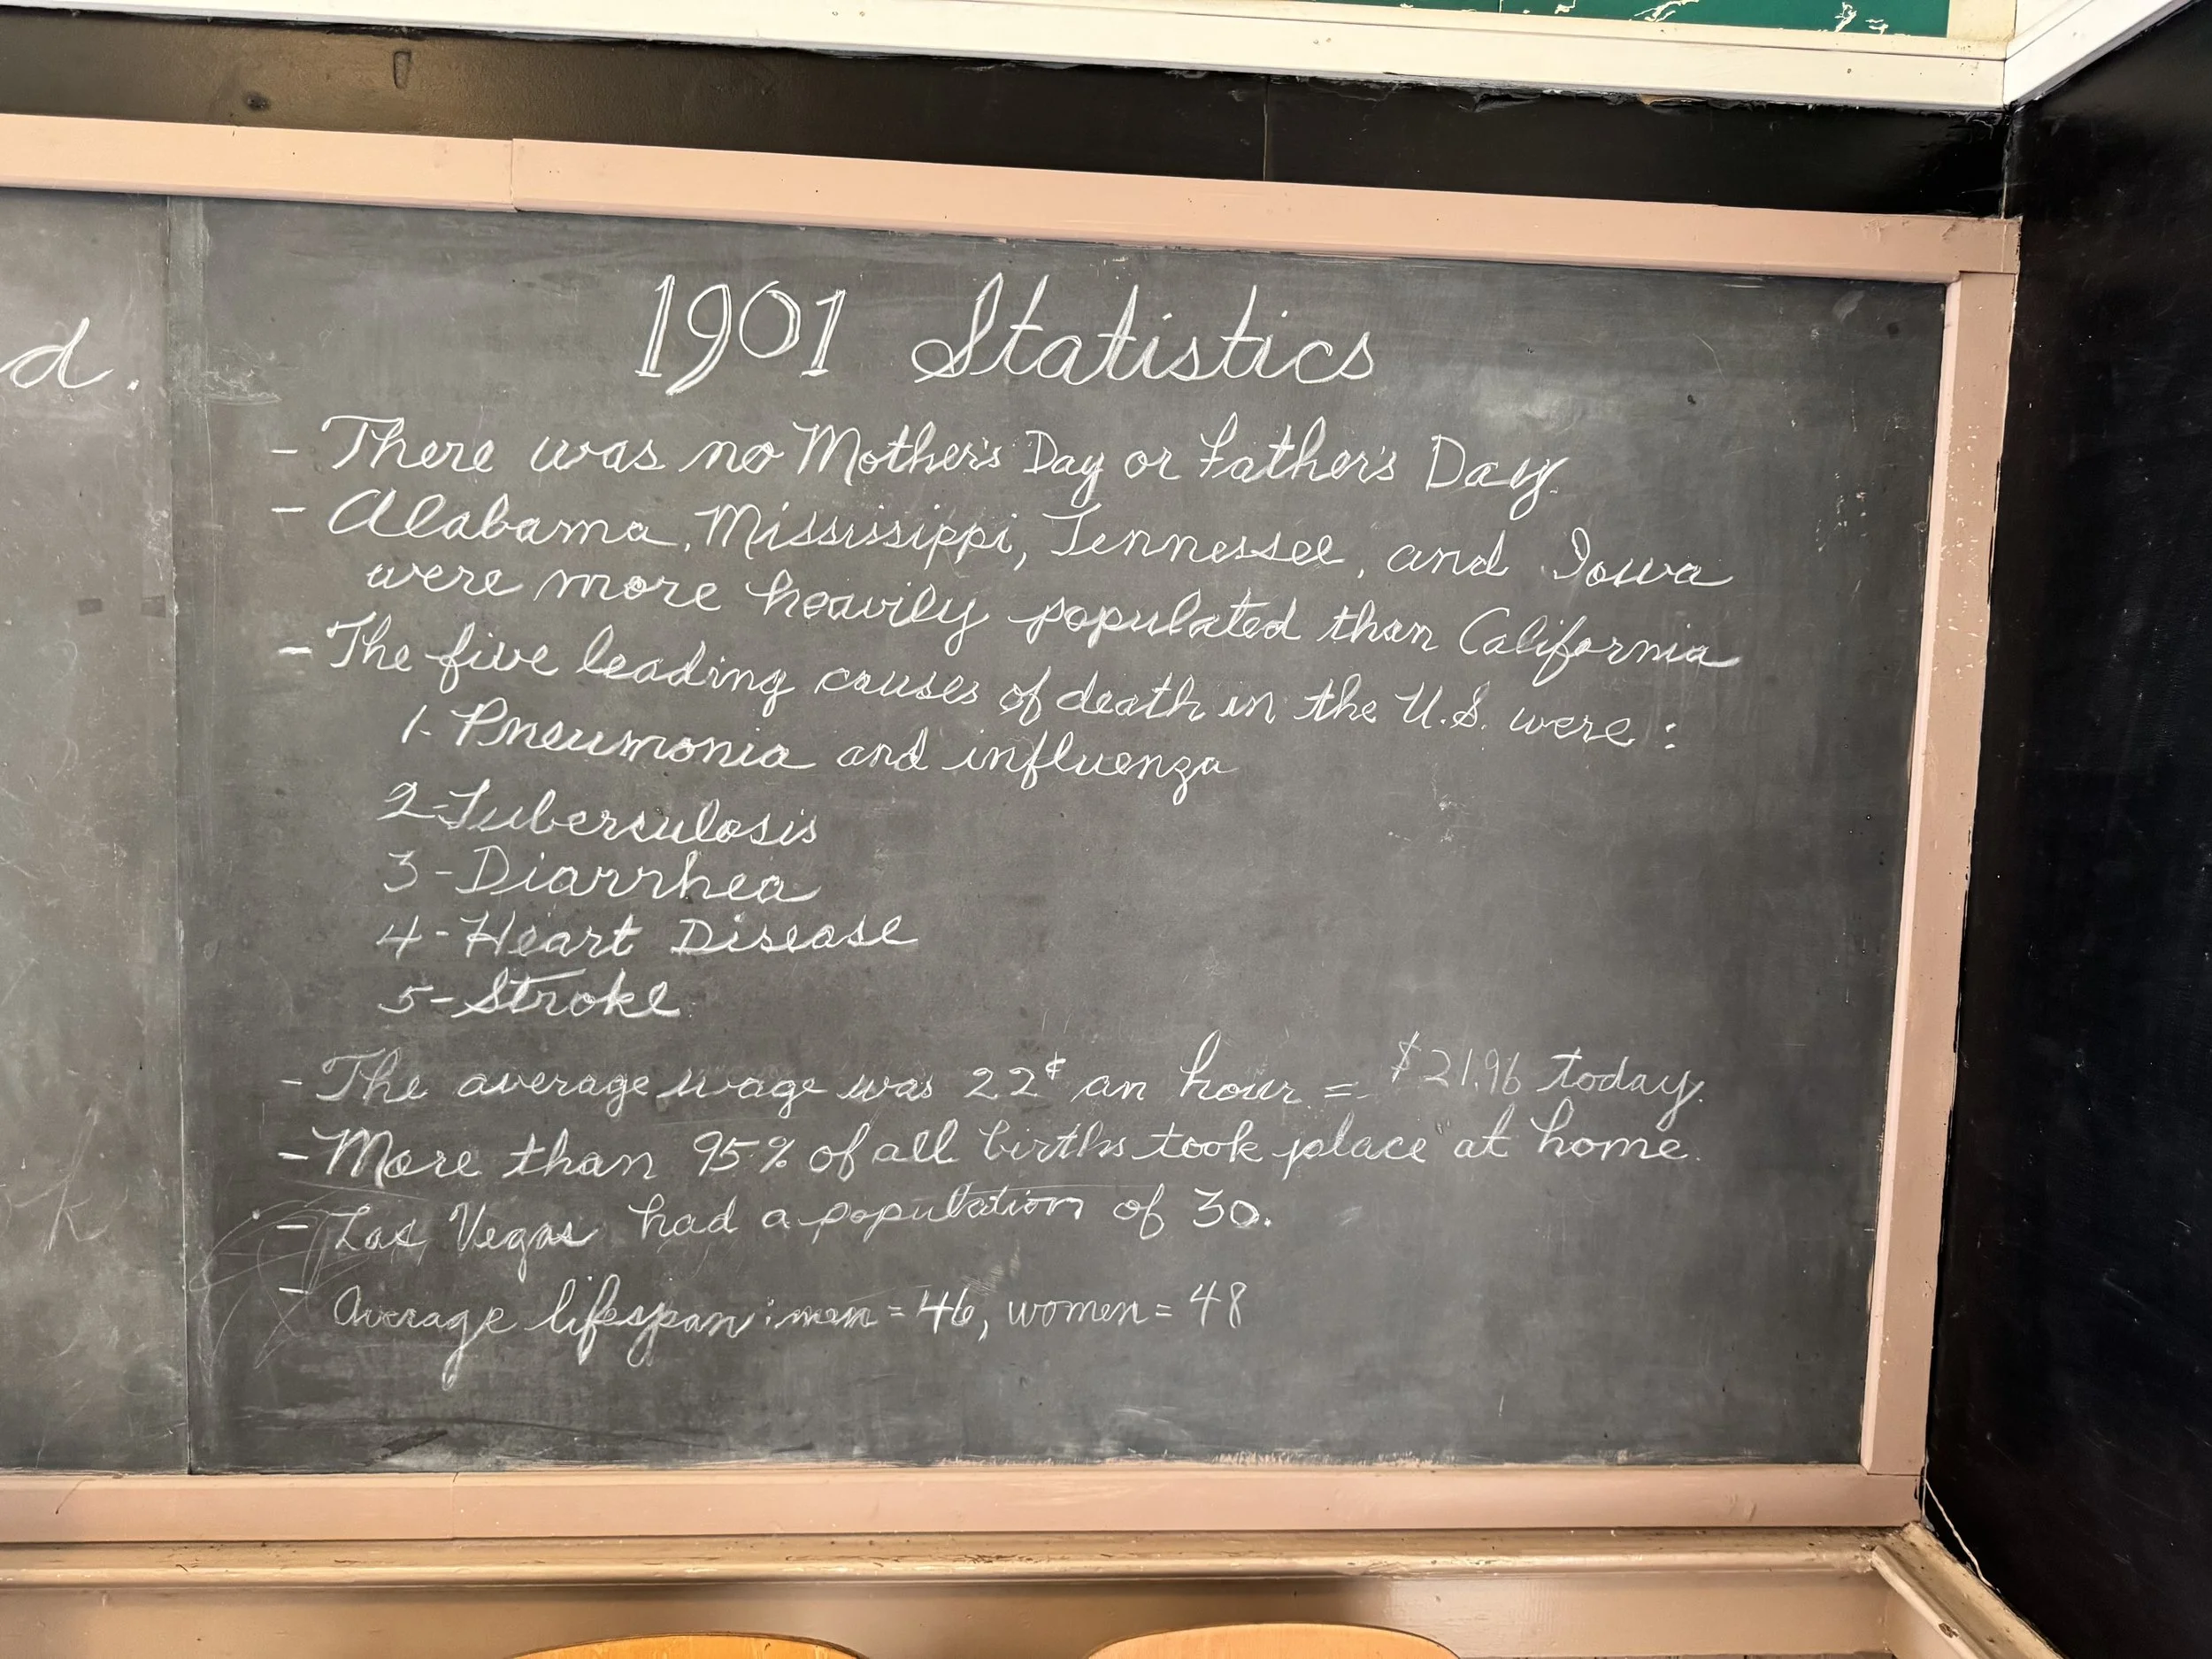 d.
1901 Statistics
- There was no Mother's Day or Father's Day.
- Alabama, Mississippi, Tennessee, and Iowa
were more heavily populated than California
- The five leading causes of death in the U.S. were:
1. Pneumonia and influenza
2-Tuberculosis
3-Diarrhea
4-Heart Disease
5-Stroke
- The average wage was 22¢ an hour = $21.96 today.
- More than 95% of all births took place at home.
- Las Vegas had a population of 30.
- Average lifespan: men = 46, women = 48
k